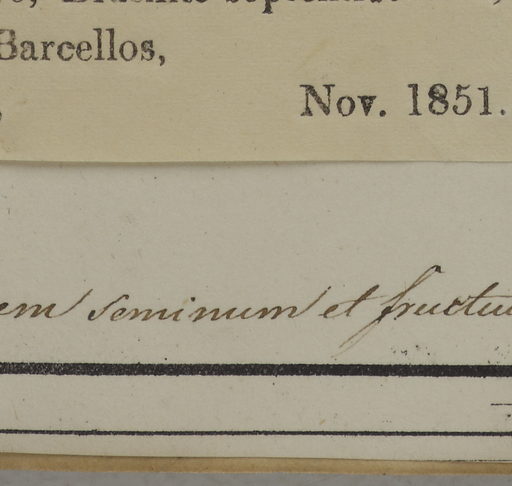 Barcellos,
Nov. 1851.
em seminum et fructu